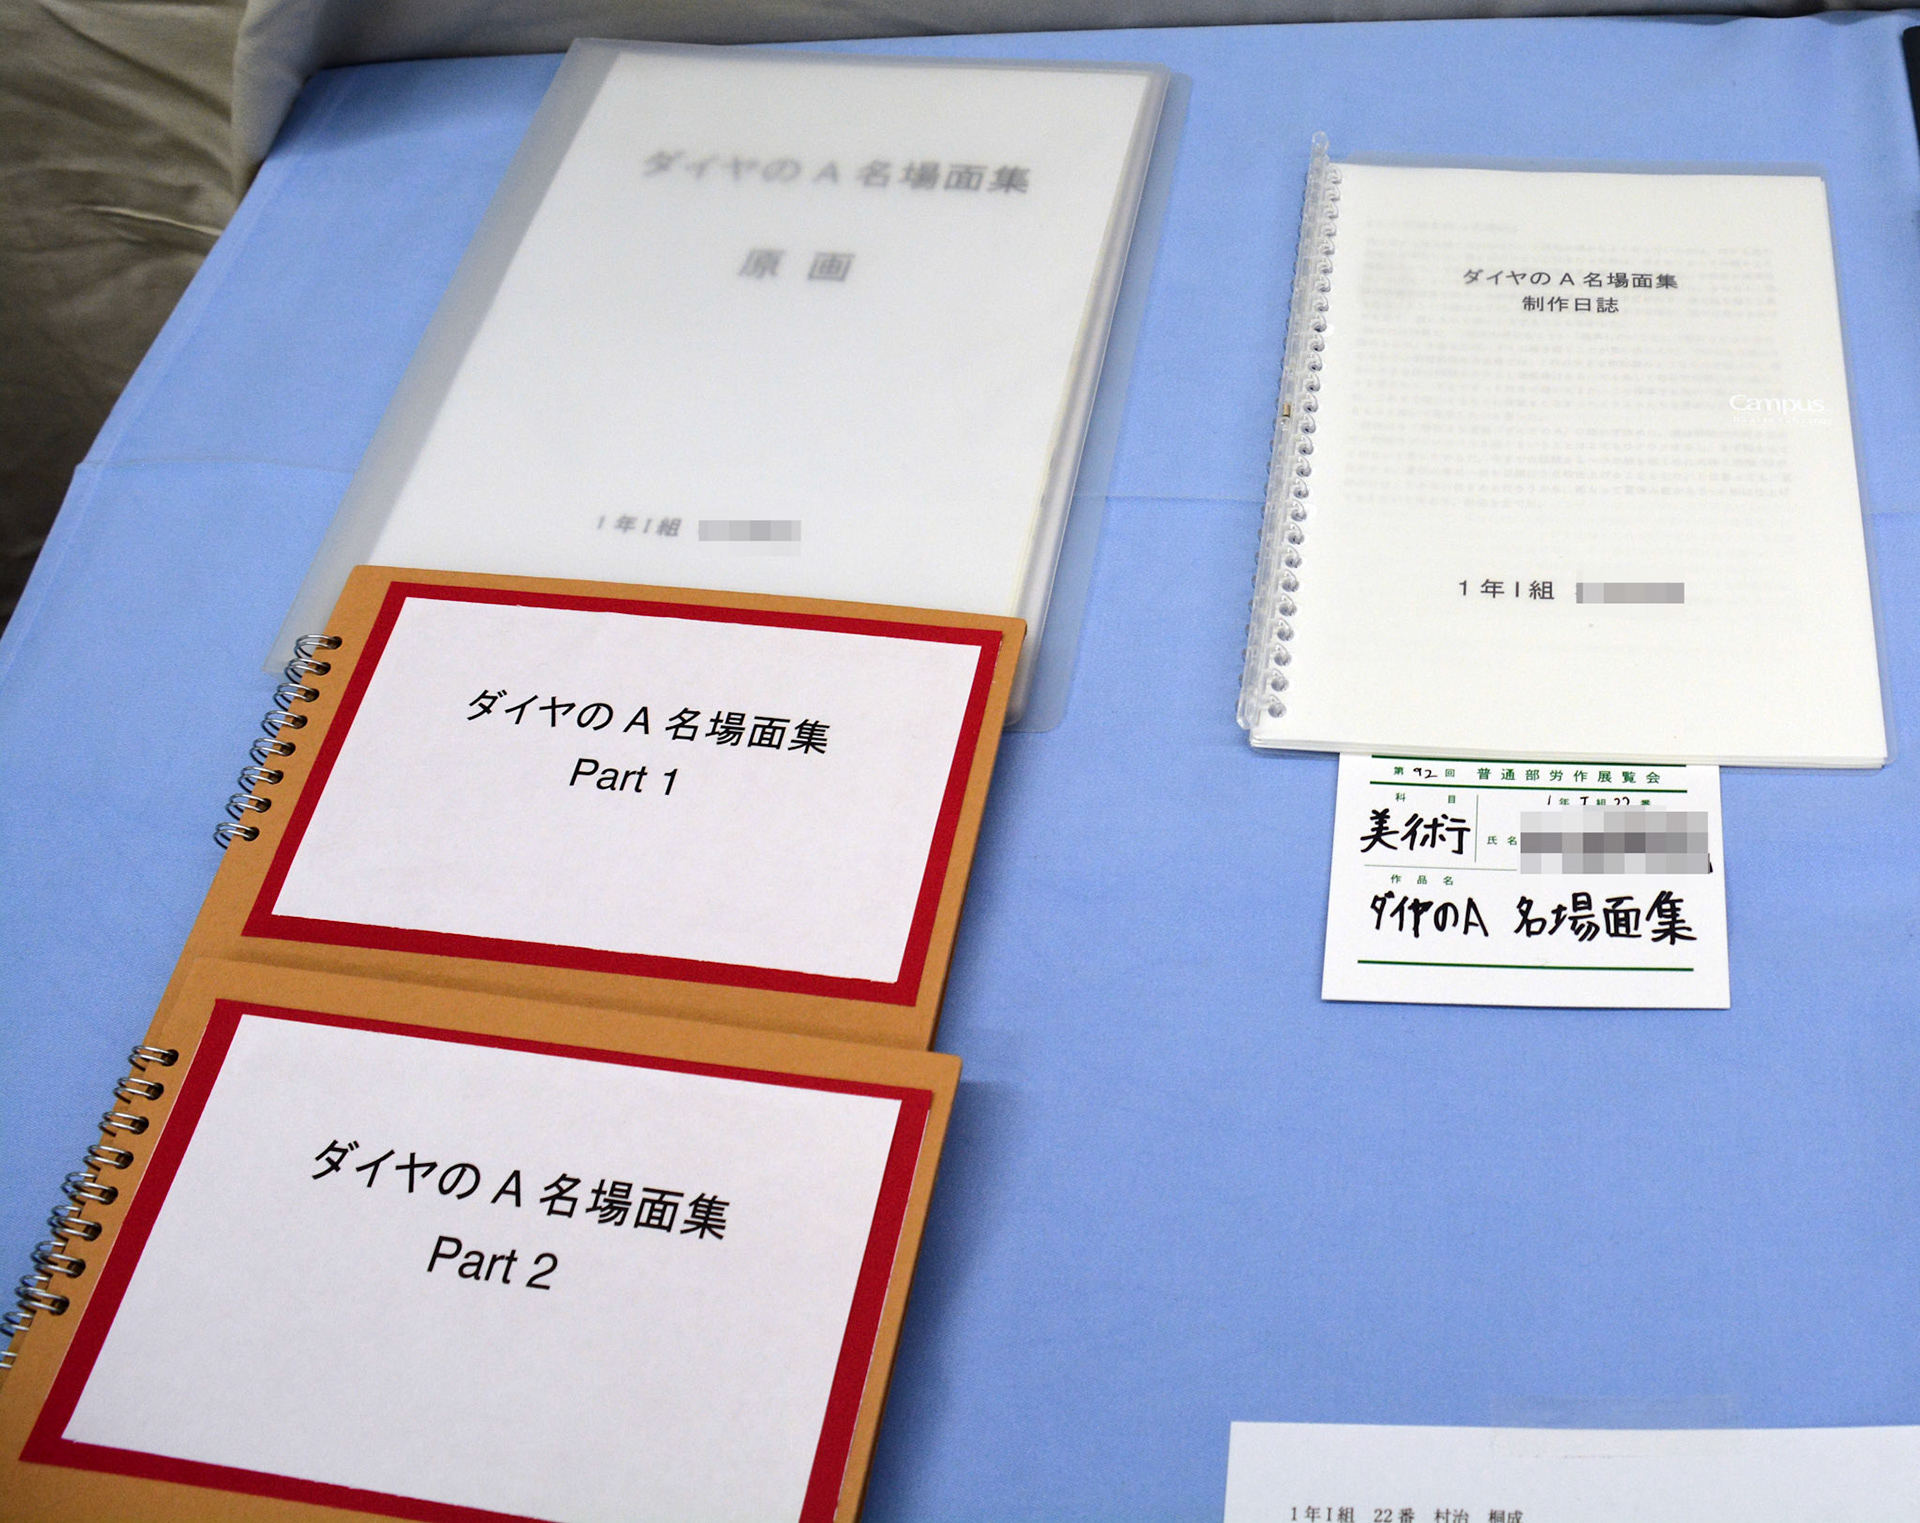 ダイヤのA 名場面集
原画
1年I組
ダイヤのA 名場面集
制作日誌
Campus
1年I組
ダイヤのA 名場面集
Part 1
ダイヤのA 名場面集
Part 2
第92回 普通部労作展覧会
科目
1年I組22番
美術
氏名
作品名
ダイヤのA 名場面集
1年I組 22番 村治 桐成